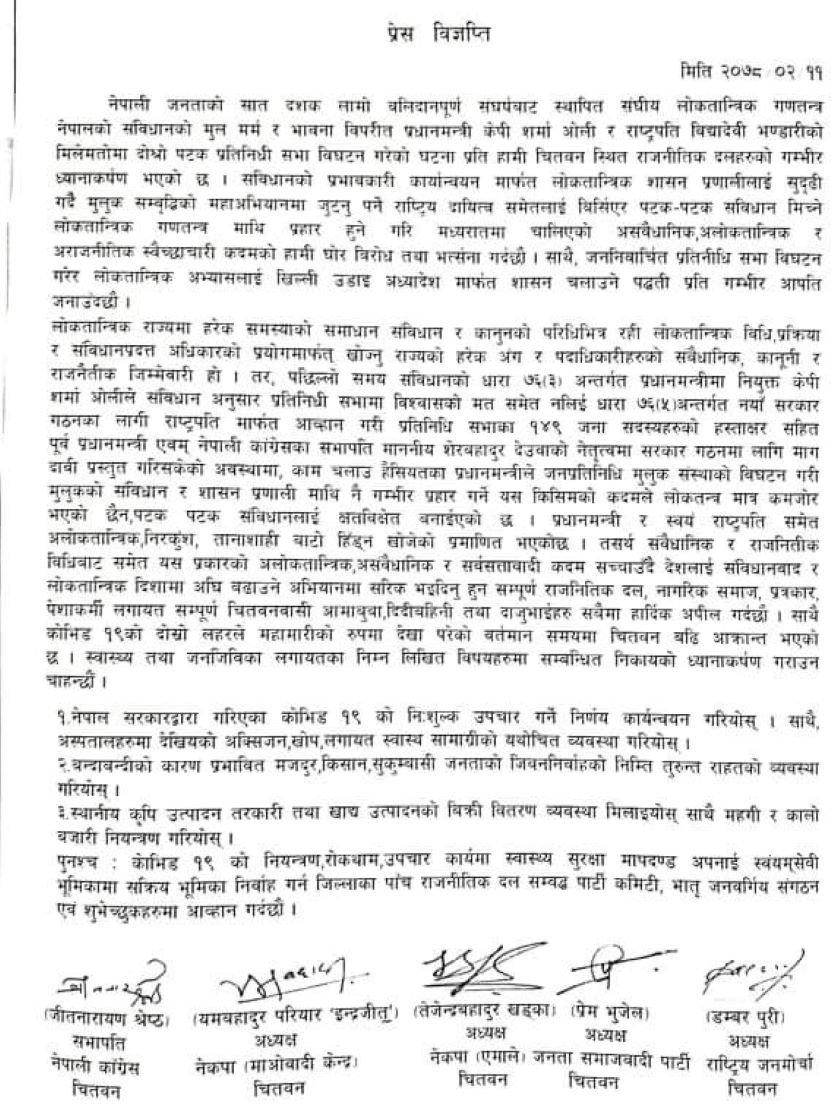 प्रेस विज्ञप्ति
मिति २०७८/०२/११
नेपाली जनताको सात दशक लामो बलिदानपूर्ण संघर्षबाट स्थापित संघीय लोकतान्त्रिक गणतन्त्र
नेपालको संविधानको मुल मर्म र भावना विपरीत प्रधानमन्त्री केपी शर्मा ओली र राष्ट्रपति विद्यादेवी भण्डारीको
मिलेमतोमा दोश्रो पटक प्रतिनिधी सभा विघटन गरेको घटना प्रति हामी चितवन स्थित राजनीतिक दलहरुको गम्भीर
ध्यानाकर्षण भएको छ । संविधानको प्रभावकारी कार्यान्वयन मार्फत लोकतान्त्रिक शासन प्रणालीलाई सुदृढी
गर्दै मुलुक सम्वृद्धिको महाअभियानमा जुट्नु पर्ने राष्ट्रिय दायित्व समेतलाई बिर्सिएर पटक-पटक संविधान मिच्ने
लोकतान्त्रिक गणतन्त्र माथि प्रहार हुने गरि मध्यरातमा चालिएको असंवैधानिक,अलोकतान्त्रिक र
अराजनीतिक स्वैच्छाचारी कदमको हामी घोर विरोध तथा भर्त्सना गर्दछौं । साथै, जननिर्वाचित प्रतिनीधि सभा विघटन
गरेर लोकतान्त्रिक अभ्यासलाई खिल्ली उडाइ अध्यादेश मार्फत शासन चलाउने पद्धती प्रति गम्भीर आपति
जनाउंदछौं ।
लोकतान्त्रिक राज्यमा हरेक समस्याको समाधान संविधान र कानुनको परिधिभित्र रही लोकतान्त्रिक विधि,प्रक्रिया
र संविधानप्रदत्त अधिकारको प्रयोगमार्फत् खोज्नु राज्यको हरेक अंग र पदाधिकारीहरुको संबैधानिक, कानूनी र
राजनैतीक जिम्मेबारी हो । तर, पछिल्लो समय संविधानको धारा ७६(३) अन्तर्गत प्रधानमन्त्रीमा नियुक्त केपी
शर्मा ओलीले संविधान अनुसार प्रतिनिधी सभामा विश्वासको मत समेत नलिई धारा ७६(५)अन्तर्गत नयाँ सरकार
गठनका लागी राष्ट्रपति मार्फत आव्हान गरी प्रतिनिधि सभाका १४९ जना सदस्यहरुको हस्ताक्षर सहित
पूर्व प्रधानमन्त्री एवम् नेपाली कांग्रेसका सभापति माननीय शेरबहादुर देउवाको नेतृत्वमा सरकार गठनमा लागि माग
दावी प्रस्तुत गरिसकेको अवस्थामा, काम चलाउ हैसियतका प्रधानमन्त्रीले जनप्रतिनिधि मुलुक संस्थाको विघटन गरी
मुलुकको संविधान र शासन प्रणाली माथि नै गम्भीर प्रहार गर्ने यस किसिमको कदमले लोकतन्त्र मात्र कमजोर
भएको छैन,पटक पटक संविधानलाई क्षतविक्षेत बनाईएको छ । प्रधानमन्त्री र स्वयं राष्ट्रपति समेत
अलोकतान्त्रिक,निरकुंश, तानाशाही बाटो हिंड्न खोजेको प्रमाणित भएकोछ । तसर्थ संवैधानिक र राजनितीक
विधिबाट समेत यस प्रकारको अलोकतान्त्रिक,असंवैधानिक र सर्वसत्तावादी कदम सच्चाउँदै देशलाई संविधानवाद र
लोकतान्त्रिक दिशामा अघि बढाउने अभियानमा सरिक भइदिनु हुन सम्पूर्ण राजनितिक दल, नागरिक समाज, प्रत्रकार,
पेशाकर्मी लगायत सम्पूर्ण चितवनवासी आमाबुबा,दिदीबहिनी तथा दाजुभाईहरु सबैमा हार्दिक अपील गर्दछौं । साथै
कोभिड १९को दोस्रो लहरले महामारीको रुपमा देखा परेको वर्तमान समयमा चितवन बढि आक्रान्त भएको
छ । स्वास्थ्य तथा जनजिविका लगायतका निम्न लिखित विषयहरुमा सम्बन्धित निकायको ध्यानाकर्षण गराउन
चाहन्छौं ।
१.नेपाल सरकारद्वारा गरिएका कोभिड १९ को नि:शुल्क उपचार गर्ने निर्णय कार्यन्वयन गरियोस् । साथै,
अस्पतालहरुमा देखियको अक्सिजन,खोप,लगायत स्वास्थ सामाग्रीको यथोचित व्यवस्था गरियोस् ।
२.बन्दाबन्दीको कारण प्रभावित मजदुर,किसान,सुकुम्बासी जनताको जिवननिर्वाहको निम्ति तुरुन्त राहतको व्यवस्था
गरियोस् ।
३.स्थानीय कृषि उत्पादन तरकारी तथा खाद्य उत्पादनको बिक्री वितरण व्यवस्था मिलाइयोस् साथै महगी र कालो
बजारी नियन्त्रण गरियोस् ।
पुनश्च : कोभिड १९ को नियन्त्रण,रोकथाम,उपचार कार्यमा स्वास्थ्य सुरक्षा मापदण्ड अपनाई स्वंयम्सेवी
भूमिकामा सक्रिय भूमिका निर्वाह गर्न जिल्लाका पांच राजनीतिक दल सम्वद्ध पार्टी कमिटी, भातृ जनवर्गिय संगठन
एवं शुभेच्छुकहरुमा आव्हान गर्दछौं ।
(जीतनारायण श्रेष्ठ) (यमबहादुर परियार ‘इन्द्रजीत्’) (तेजेन्द्रबहादुर खड्का) (प्रेम भुजेल) (डम्बर पुरी)
सभापति अध्यक्ष अध्यक्ष अध्यक्ष अध्यक्ष
नेपाली कांग्रेस नेकपा (माओबादी केन्द्र) नेकपा (एमाले) जनता समाजवादी पार्टी राष्ट्रिय जनमोर्चा
चितवन चितवन चितवन चितवन चितवन